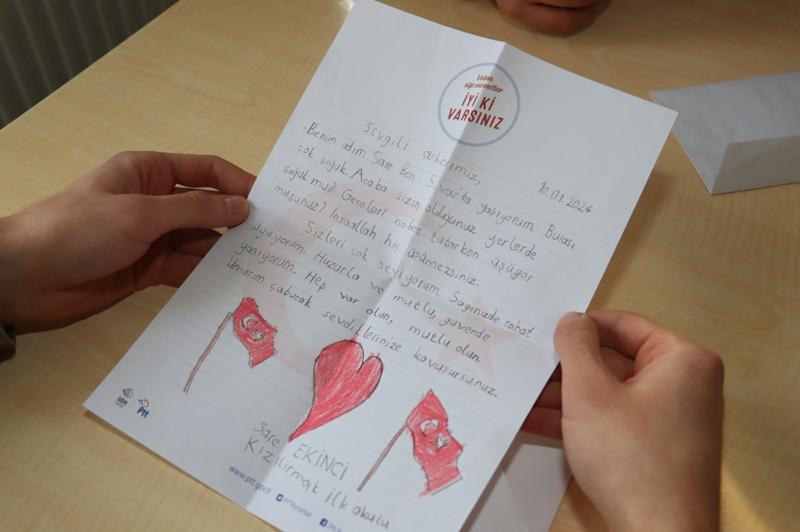 Vatan
size minnettar
İYİ Kİ
VARSINIZ
10.01.2024
Sevgili askerimiz,
Benim adım Sare. Ben Sivas'ta yaşıyorum. Burası
çok soğuk. Acaba sizin olduğunuz yerlerde
soğuk mu? Geceleri nöbet tutarken üşüyor
musunuz? İnşaallah hiç üşümezsiniz.
Sizleri çok seviyorum. Sayenizde rahat
uyuyorum. Huzurla ve mutlu, güvende
yaşıyorum. Hep var olun, mutlu olun.
Umarım çabucak sevdiklerinize kavuşursunuz.
Sare EKİNCİ
Kızılırmak ilk okulu
Ptt